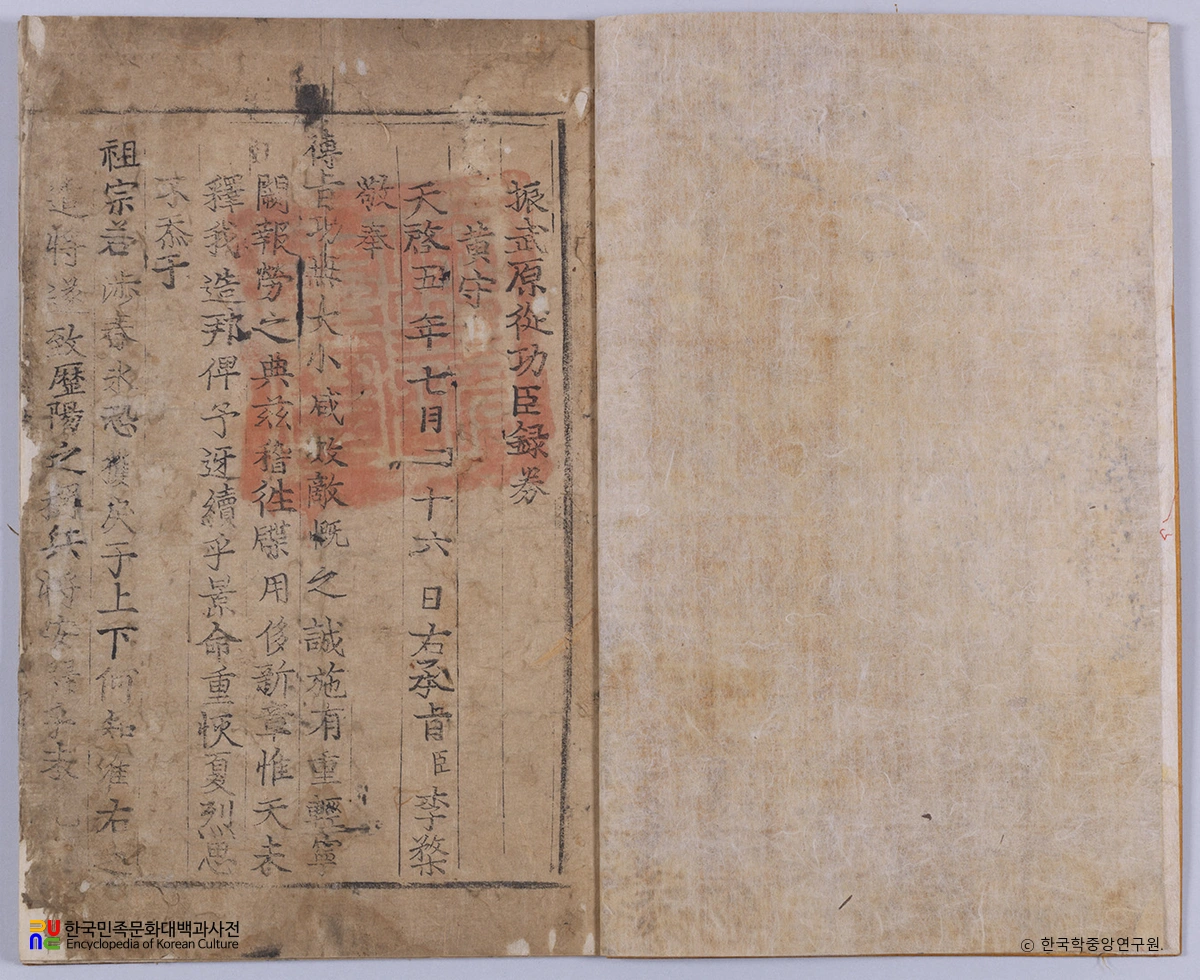 振武原從功臣錄券
黃守
天啓五年七月二十六日右承旨臣李楘
敬奉
傳旨功無大小咸效敵愾之誠施有重輕寧
闕報勞之典玆稽徃牒用侈新章惟天表
釋我造邦俾予迓續乎景命重恢夏烈思
不忝于
祖宗若涉春氷恐獲戾于上下何知淮右之
將遂致歷陽之稱兵將安
한국민족문화대백과사전
Encyclopedia of Korean Culture
© 한국학중앙연구원.